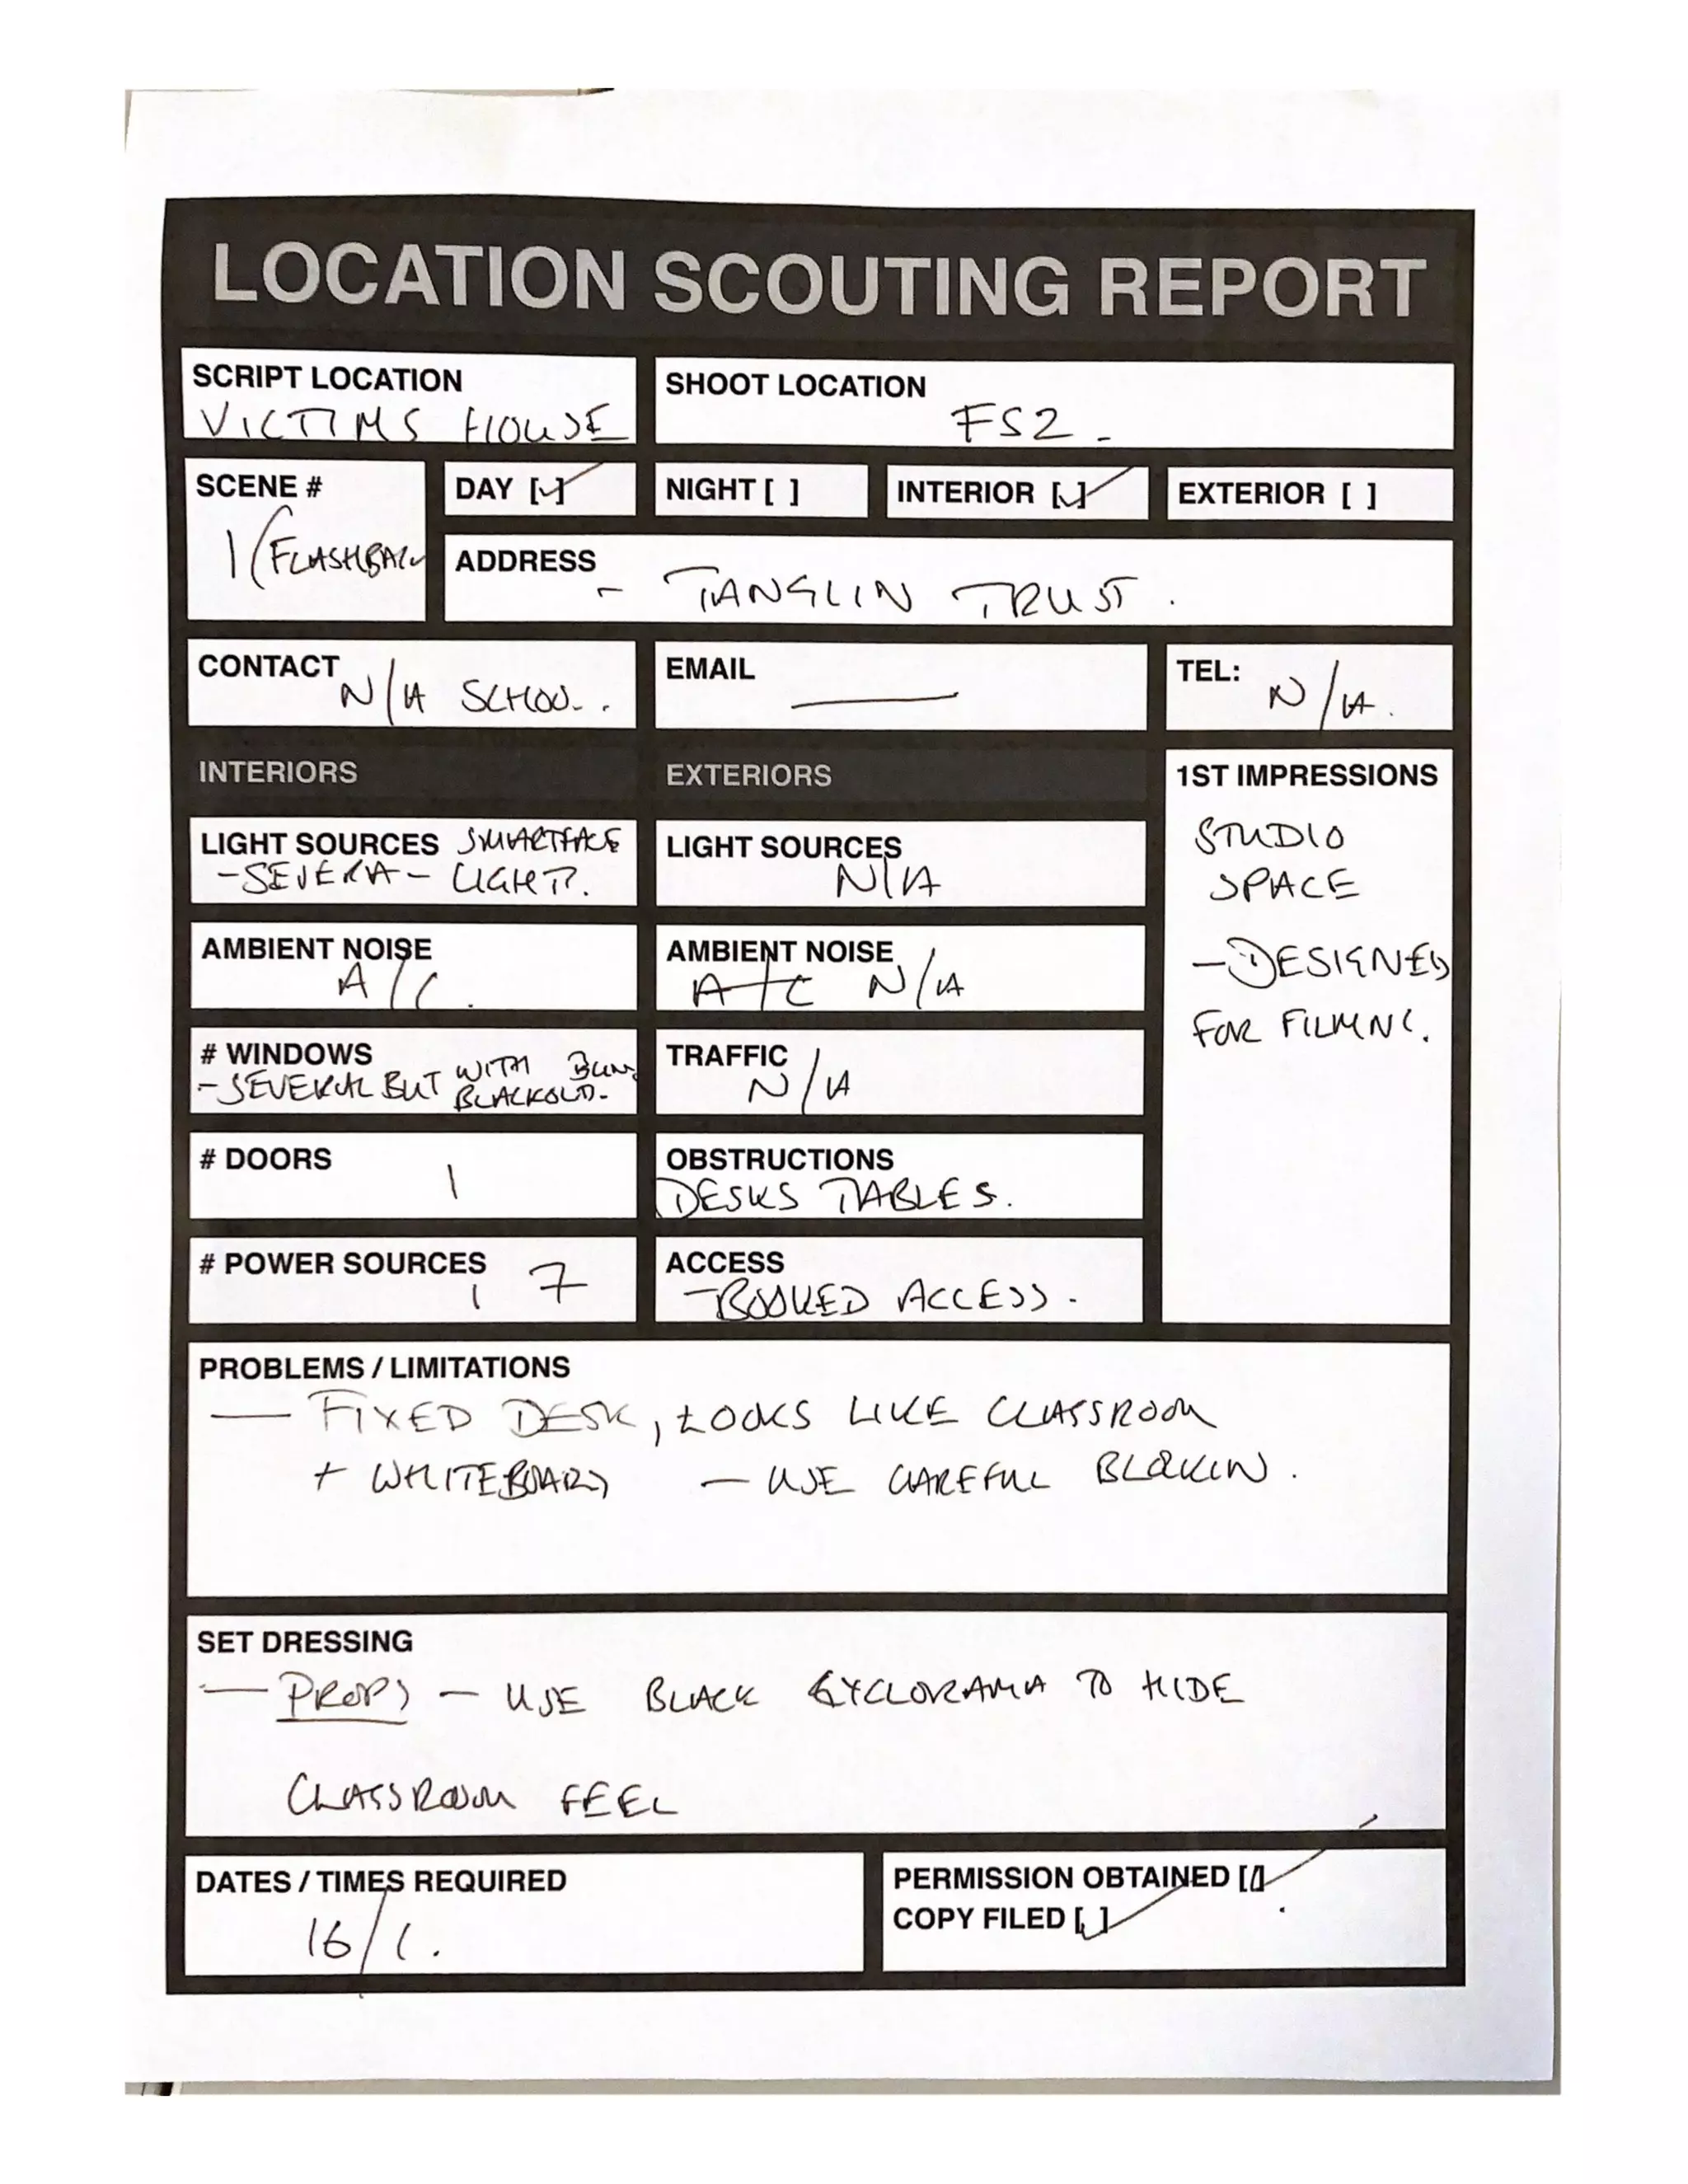 LOCATION SCOUTING REPORT
SCRIPT LOCATION
VICTIMS HOUSE
SHOOT LOCATION
FS2 -
SCENE #
1/FLASHBACK
DAY [✓]
NIGHT [ ]
INTERIOR [✓]
EXTERIOR [ ]
ADDRESS
- TANGLIN TRUST.
CONTACT
N/A SCHOOL.
EMAIL
—
TEL:
N/A.
INTERIORS
LIGHT SOURCES
-SEVERAL LIGHTS.
AMBIENT NOISE
A/C.
# WINDOWS
WITH
-SEVERAL BUT BLACKOUT-
# DOORS
1
# POWER SOURCES
7
EXTERIORS
LIGHT SOURCES
N/A
AMBIENT NOISE
A/C N/A
TRAFFIC
N/A
OBSTRUCTIONS
DESKS TABLES.
ACCESS
-BOOKED ACCESS.
1ST IMPRESSIONS
STUDIO
SPACE
-DESIGNED
FOR FILMNG.
PROBLEMS / LIMITATIONS
— FIXED DESK, LOOKS LIKE CLASSROOM
+ WHITEBOARD — USE CAREFUL BLOCKIN.
SET DRESSING
— PROPS — USE BLACK CYCLORAMA TO HIDE
CLASSROOM FEEL
DATES / TIMES REQUIRED
16/1.
PERMISSION OBTAINED [✓]
COPY FILED [✓]